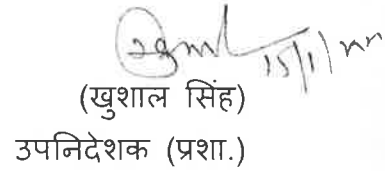 15/1/
(खुशाल सिंह)
उपनिदेशक (प्रशा.)